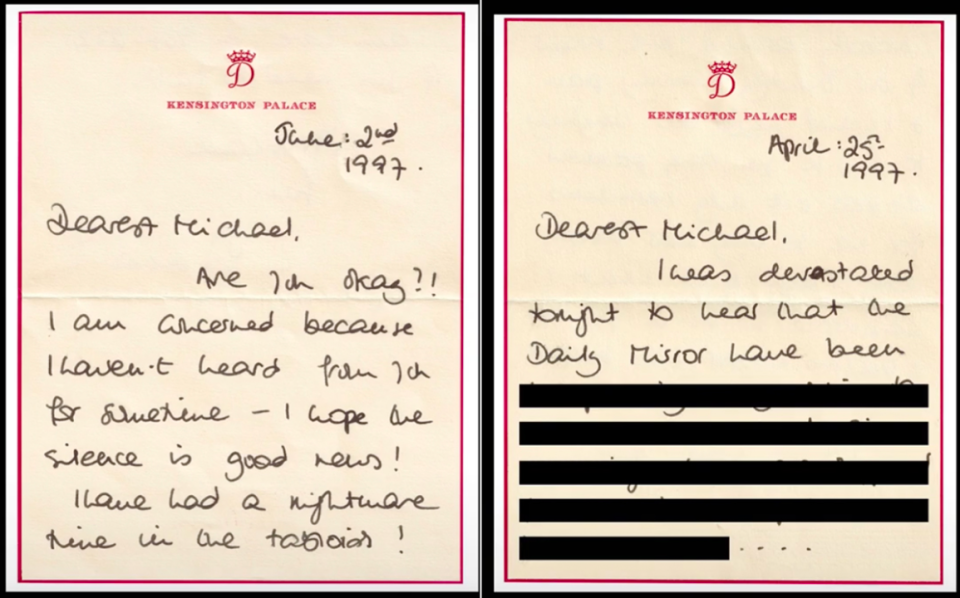 D
KENSINGTON PALACE
June: 2nd
1997.
Dearest Michael,
Are you okay?!
I am concerned because
I haven't heard from you
for sometime - I hope the
silence is good news!
I have had a nightmare
time in the tabloids!
D
KENSINGTON PALACE
April: 25th
1997.
Dearest Michael,
I was devastated
tonight to hear that the
Daily Mirror have been
....